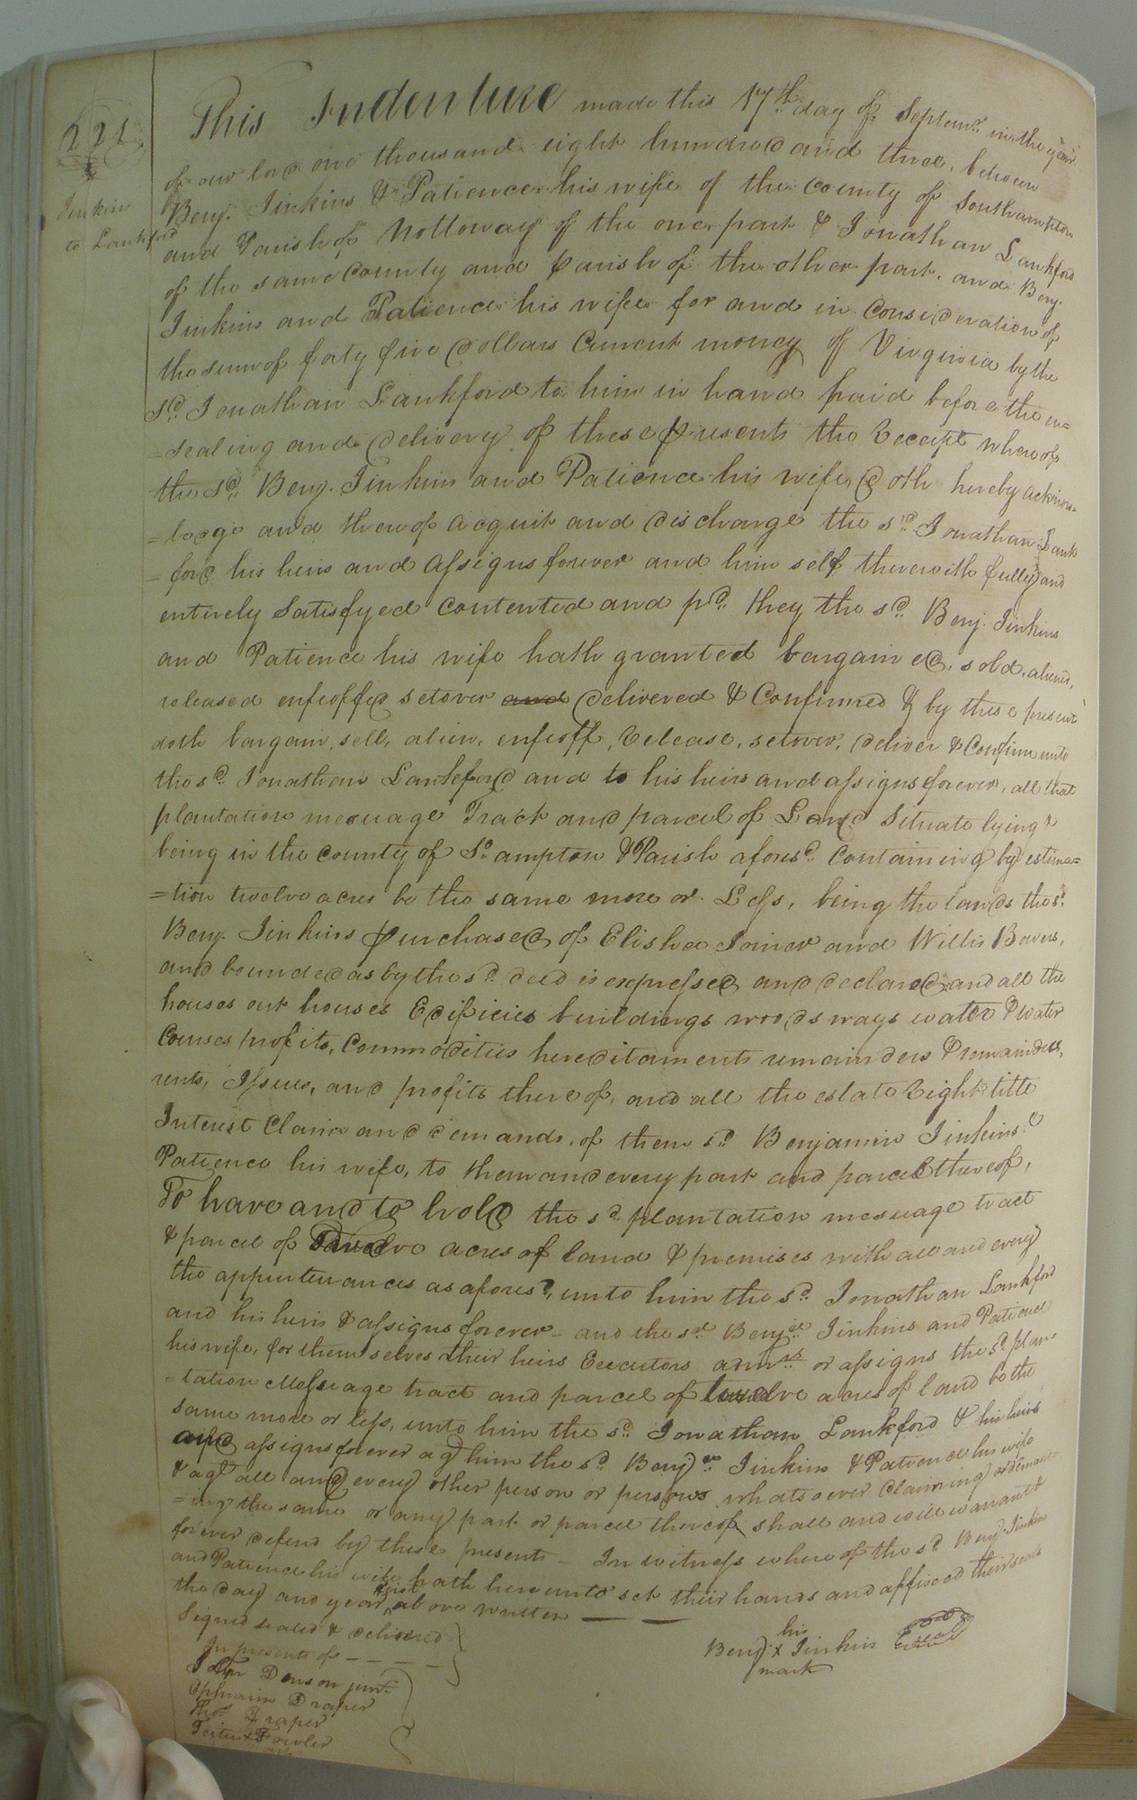 221
Jinkins
to Lankford
This Indenture made this 17th day of Septemr. in the year
of our lord one thousand eight hundred and three, between
Benj. Jinkins & Patience his wife of the county of Southampton
and Parish of Nottoway of the one part & Jonathan Lankford
of the same county and parish of the other part, and Benj.
Jinkins and Patience his wife for and in consideration of
the sum of forty five dollars Current money of Virginia by the
sd. Jonathan Lankford to him in hand paid before the en=
=sealing and delivery of these presents the Receipt whereof
the sd. Benj. Jinkins and Patience his wife doth hereby acknow=
=ledge and thereof acquit and discharge the sd. Jonathan Lank
=ford his heirs and assigns forever and him self therewith fully and
entirely Satisfyed contented and pd. they the sd. Benj. Jinkins
and Patience his wife hath granted bargained, sold, aliened,
released enfeoffed setover and delivered & Confirmed & by these presents
doth bargain, sell, alien, enfeoff, Release, setover, deliver & Confirm unto
the sd. Jonathan Lankford and to his heirs and assigns forever, all that
plantation mesuage Tract and parcel of Land Situate lying &
being in the county of So.ampton & Parish aforesd. Containing by estima=
=tion twelve acres be the same more or Less, being the lands the sd.
Benj. Jinkins purchased of Elisha Joiner and Willis Bowers,
and bounded as by the sd. deed is expressed and declared and all the
houses out houses Edificies buildings woods ways water & water
Courses profits, Commodities hereditaments remainders & remainders,
rents, Issues, and profits thereof, and all the estate Right title
Interest Claim and demands, of them sd. Benjamin Jinkins &
Patience his wife, to them and every part and parcel thereof,
To have and to hold the sd. plantation mesuage tract
& parcel of Twelve acres of land & premises with all and every
the appurtenances as aforesd, unto him the sd. Jonathan Lankford
and his heirs & assigns forever - and the sd. Benj. Jinkins and Patience
his wife, for themselves their heirs Executors admrs. or assigns the sd. plan=
=tation Messuage tract and parcel of twelve acres of land be the
same more or less, unto him the sd. Jonathan Lankford & his heirs
and assigns forever agt. him the sd. Benjan. Jinkins & Patience his wife
& agt. all and every other person or persons whatsoever Claiming or deman=
=ing the same or any part or parcel thereof shall and will warrant &
forever defend by these presents - In witness whereof the sd. Benj. Jinkins
and Patience his wife hath hereunto set their hands and affixed their seals
the day and year first above written
Signed sealed & delivered
In presents of
John Denson junr.
Ephraim Draper
Thos. Draper
his
Benj. X Jinkins Seal
mark